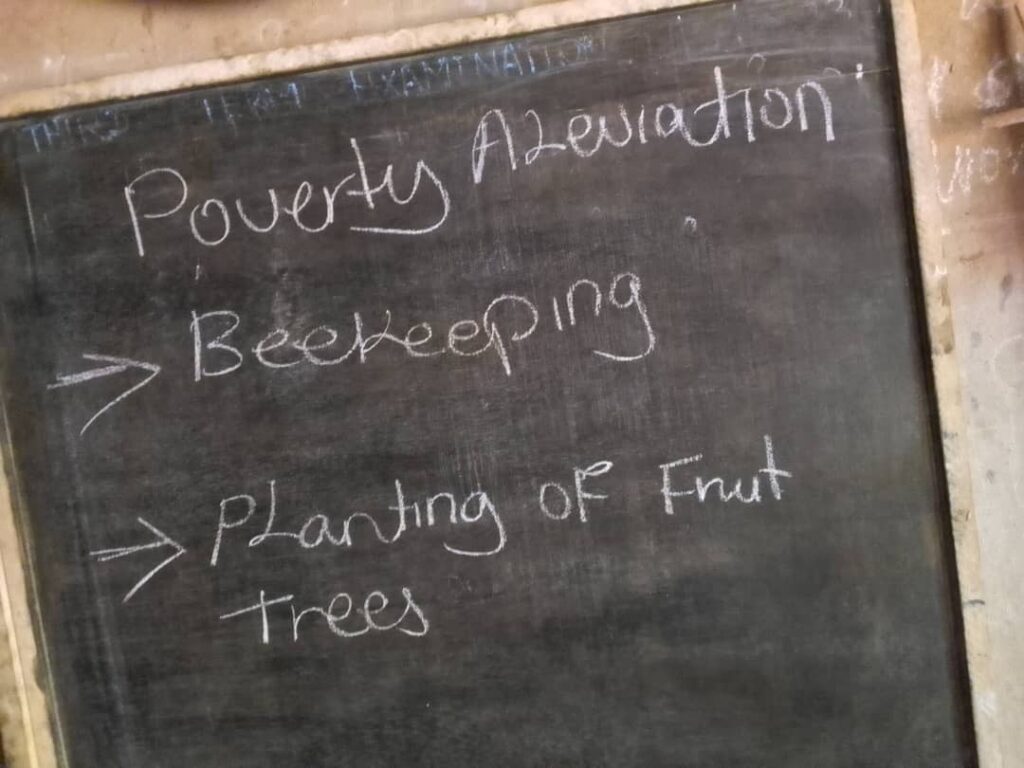 THIRD TERM EXAMINATION
Poverty Aleviation
→ Beekeeping
→ Planting of Fruit
Trees